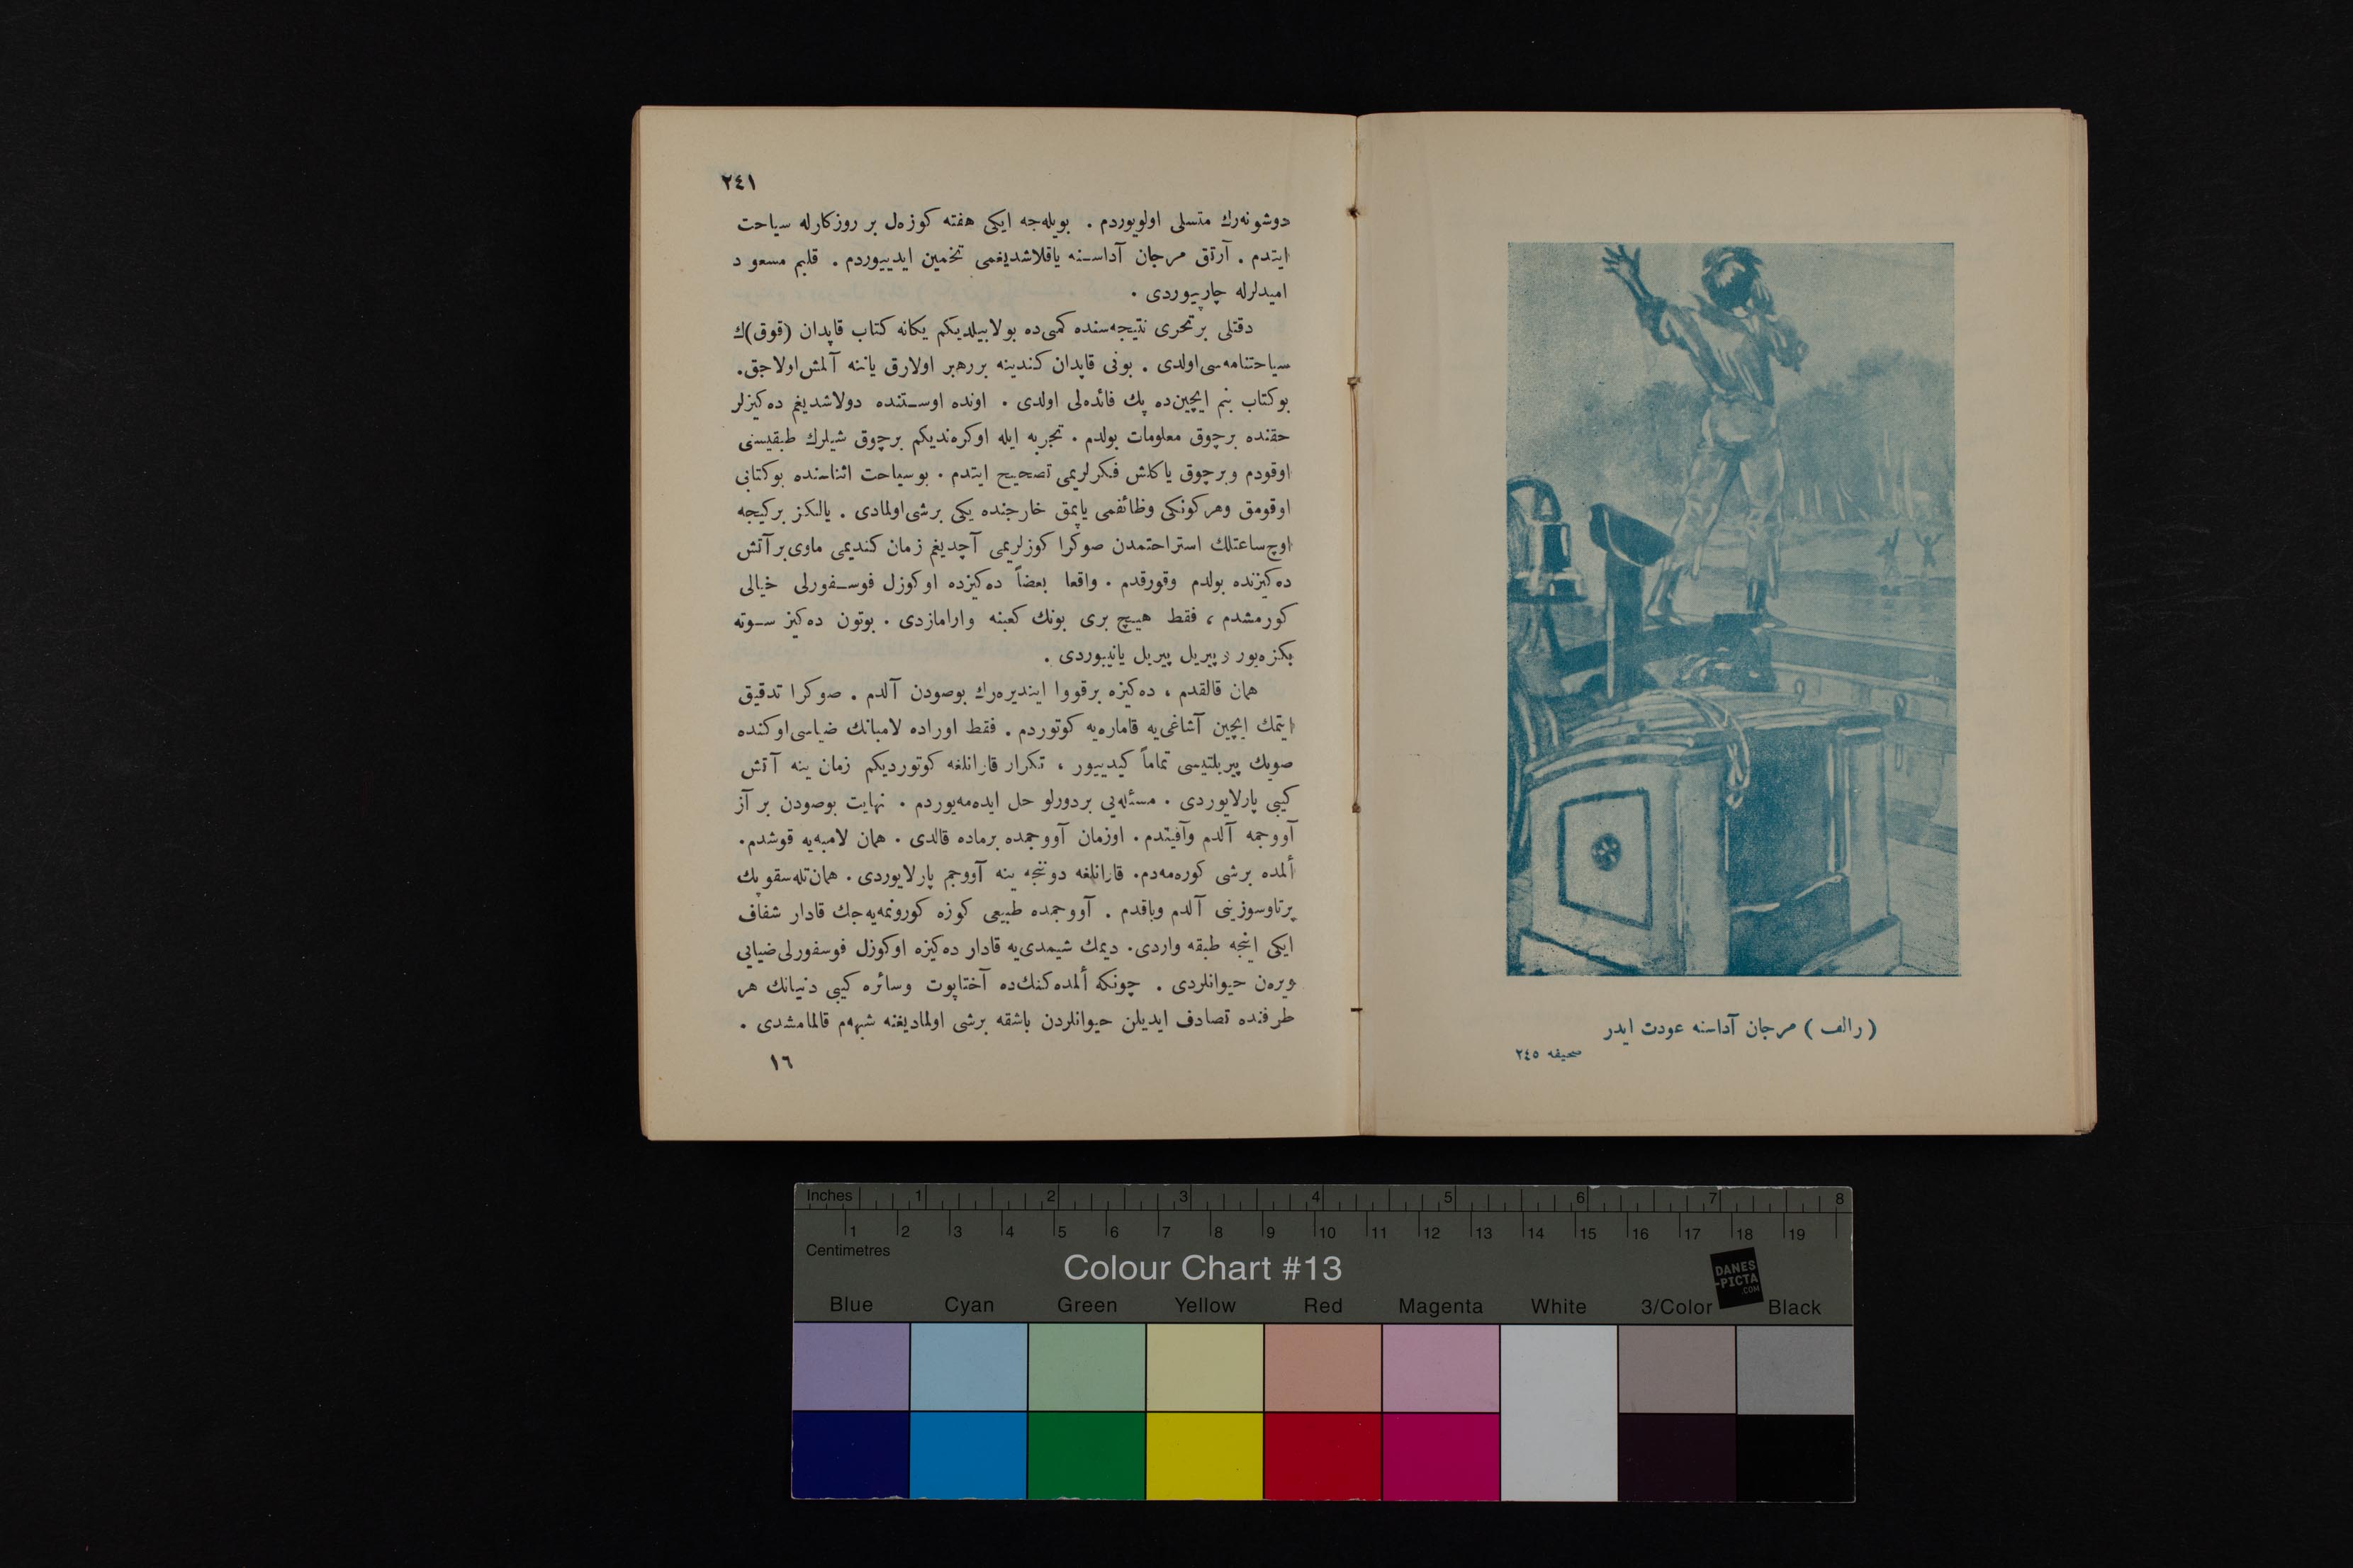 ٢٤١
دوشونه‌رك متسلی اولویوردم . بویله‌جه ایكی هفته كوزه‌ل بر روزكارله سیاحت
ایتدم . آرتق مرجان آداسـنه یاقلاشدیغمی تخمین ایدییوردم . قلبم مسعو د
امیدلرله چارپیوردی .
دقتلی برتحری نتیجه‌سنده كمی‌ده بولابیلدیكم یكانه كتاب قاپدان (قوق)ك
سیاحتنامه‌سی‌اولدی . بونی قاپدان كندینه بررهبر اولارق یاننه آلمش‌اولاجق.
بوكتاب بنم ایچین‌ده پك فائده‌لی اولدی . اونده اوسـتنده دولاشدیغم ده‌كیزلر
حقنده برچوق معلومات بولدم . تجربه ایله اوكره‌ندیكم برچوق شیلرك طبقیسنی
اوقودم وبرچوق یاكلش فكرلریمی تصحیح ایتدم . بوسیاحت اثناسنده بوكتابی
اوقومق وهركونكی وظائفمی یاپمق خارجنده یكی برشی‌اولمادی . یالكز بركیجه
اوچ‌ساعتلك استراحتمدن صوكرا كوزلریمی آچدیغم زمان كندیمی ماوی‌برآتش
ده‌كیزنده بولدم وقورقدم . واقعا بعضاً ده‌كیزده اوكوزل فوسـفورلی خیالی
كورمشدم ، فقط هیـچ بری بونك كعبنه وارامازدی . بوتون ده‌كیز سـوته
بكزه‌یور و پیریل پیریل یانیبوردی .
همان قالقدم ، ده‌كیزه برقووا ایندیره‌رك بوصودن آلدم . صوكرا تدقیق
ایتمك ایچین آشاغی‌یه قاماره‌یه كوتوردم . فقط اوراده لامبانك ضیاسی‌اوكنده
صویك پیریلتیسی تماماً كیدییور ، تكرار قارانلغه كوتوردیكم زمان ینه آتش
كیبی پارلایوردی . مسئله‌یی بردورلو حل ایده‌مه‌یوردم . نهایت بوصودن بر آز
آووجمه آلدم وآقیتدم . اوزمان آووجمده برماده قالدی . همان لامبه‌یه قوشدم.
ألمده برشی كوره‌مه‌دم. قارانلغه دوننجه ینه آووجم پارلایوردی . همان‌تله‌سقوپك
پرتاوسوزینی آلدم وباقدم . آووجمده طبیعی كوزه كورونمه‌یه‌جك قادار شفاف
ایكی اینجه طبقه واردی. دیمك شیمدی‌یه قادار ده‌كیزه اوكوزل فوسفورلی‌ضیایی
ویره‌ن حیوانلردی . چونكه ألمده‌كنك‌ده آختاپوت وسائره كیبی دنیانك هر
طرفنده تصادف ایدیلن حیوانلردن باشقه برشی اولمادیغنه شبهه‌م قالمامشدی .
١٦
( رالف ) مرجان آداسنه عودت ایدر
صحیفه ٢٤٥
Inches 1 2 3 4 5 6 7 8
1 2 3 4 5 6 7 8 9 10 11 12 13 14 15 16 17 18 19
Centimetres
Colour Chart #13
DANES
-PICTA
.COM
Blue Cyan Green Yellow Red Magenta White 3/Color Black